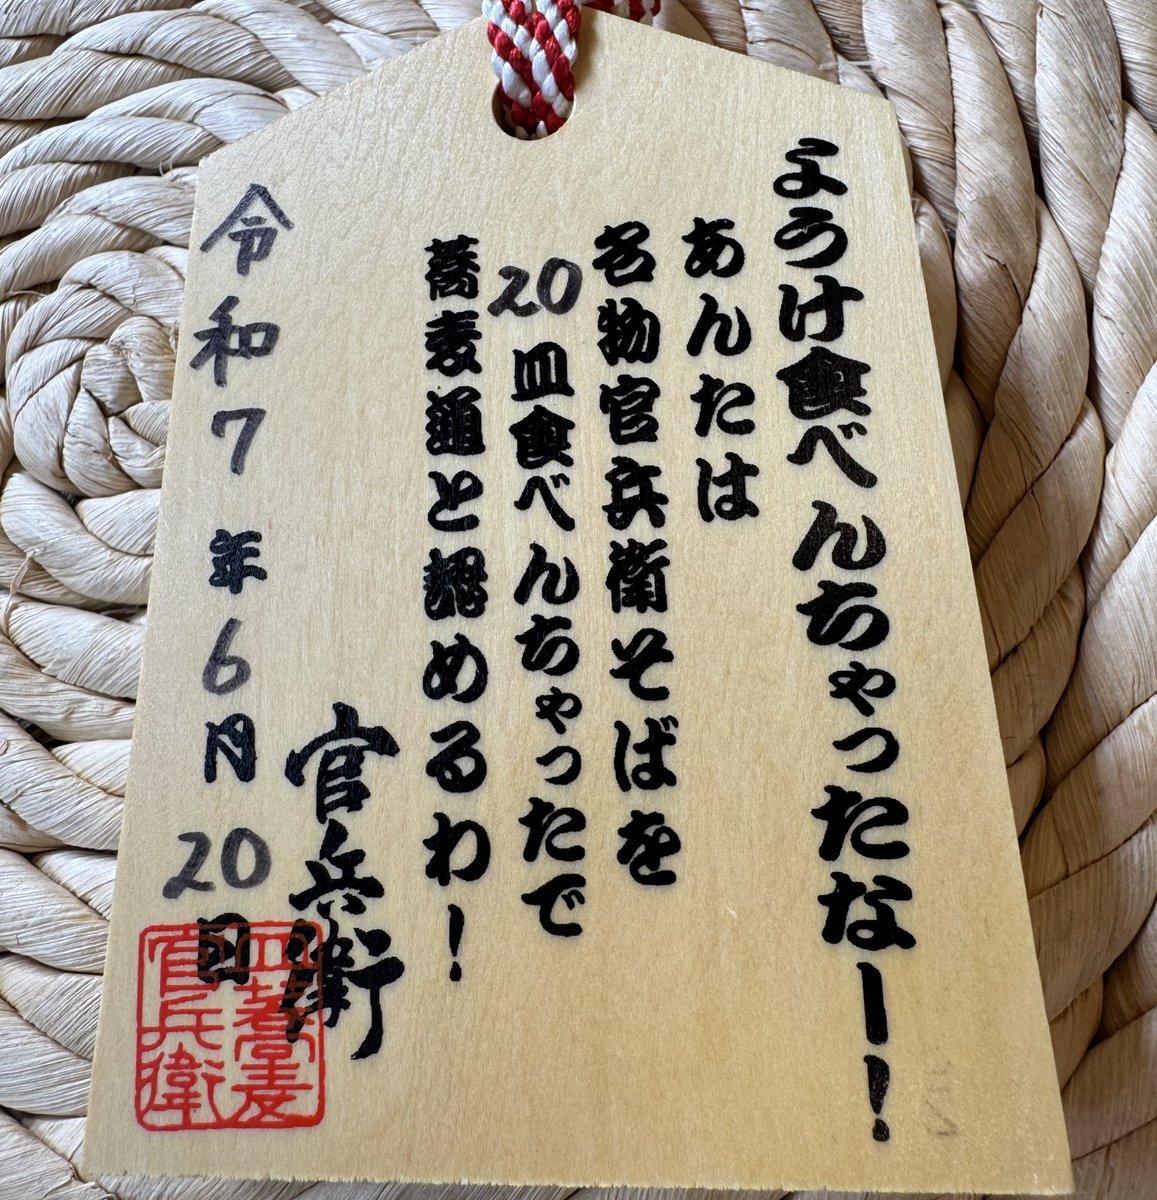 ようけ食べんちゃったなー！
あんたは
名物官兵衛そばを
20皿食べんちゃったで
蕎麦通と認めるわ！
官兵衛
令和7年6月20日
皿蕎麦
官兵衛